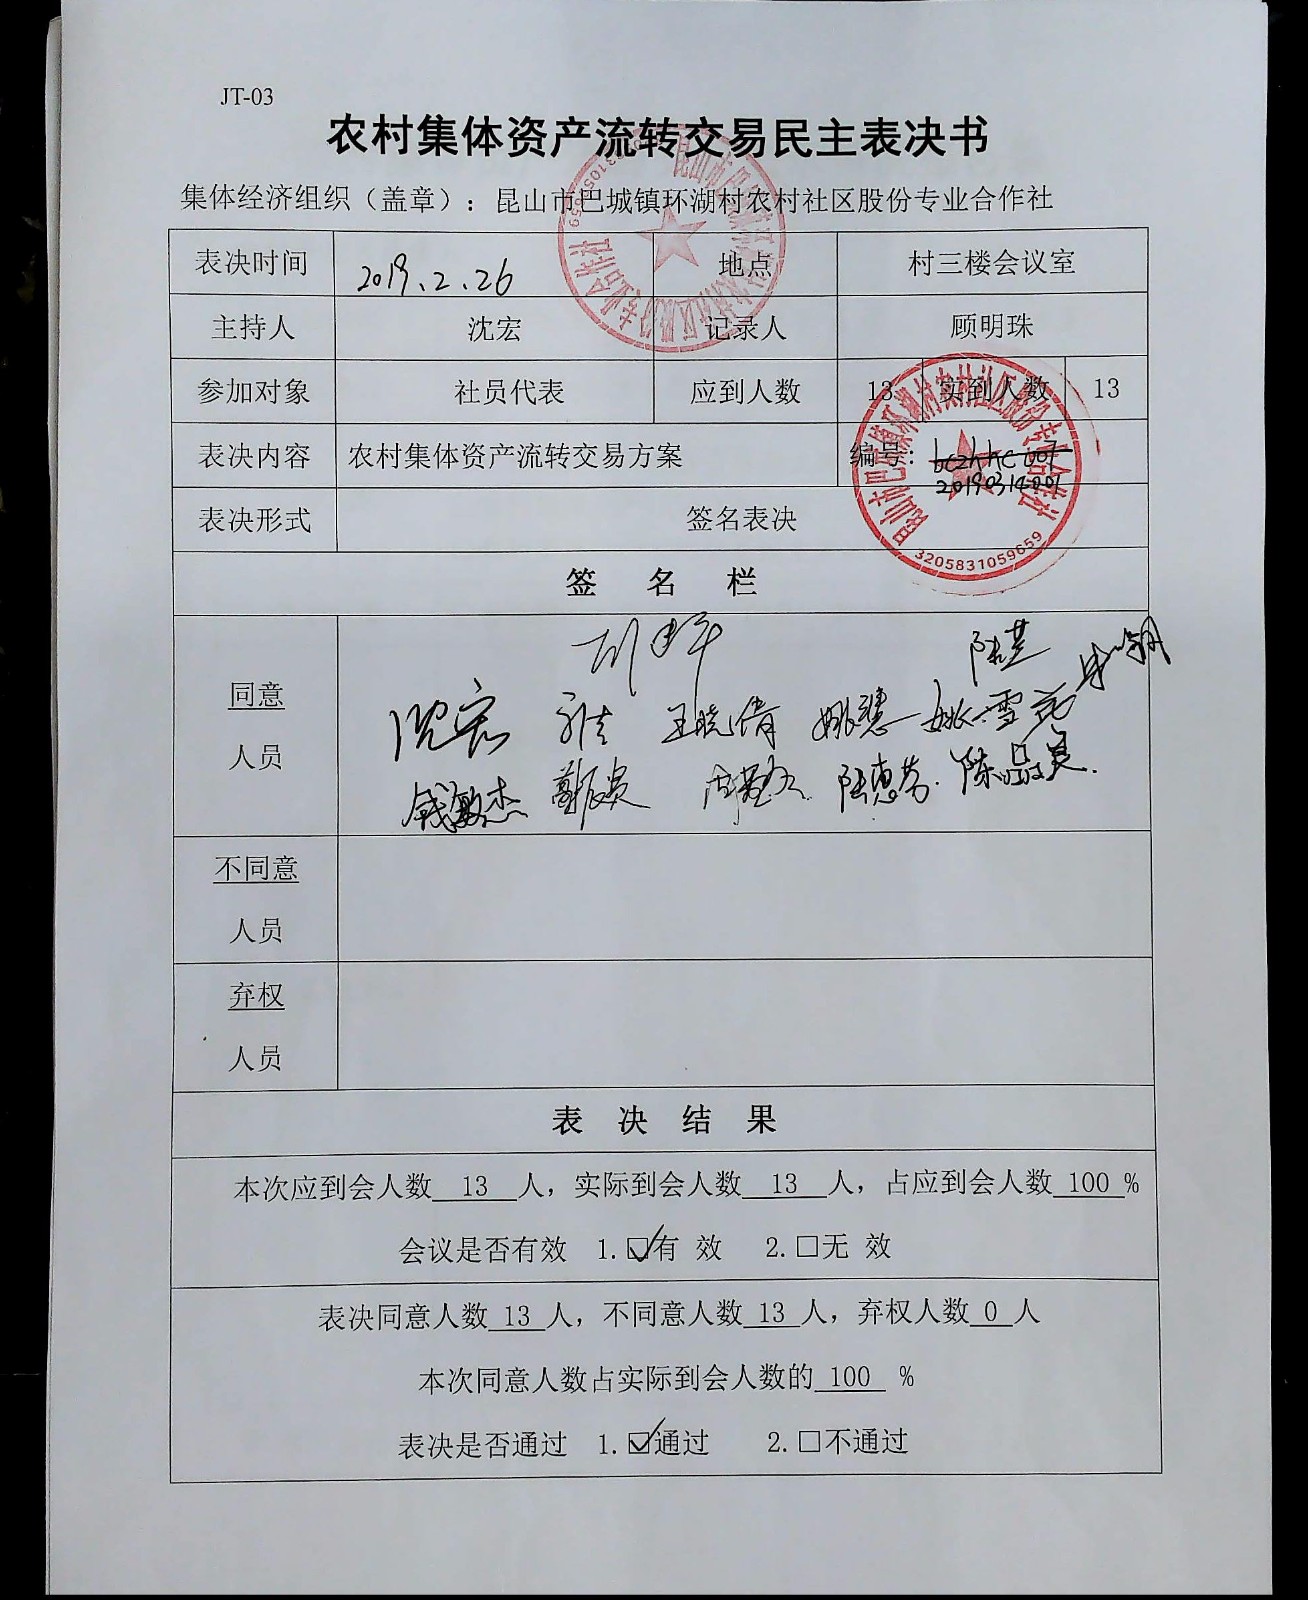 JT-03
农村集体资产流转交易民主表决书
集体经济组织（盖章）：昆山市巴城镇环湖村农村社区股份专业合作社
表决时间 2019.2.26 地点 村三楼会议室
主持人 沈宏 记录人 顾明珠
参加对象 社员代表 应到人数 13 实到人数 13
表决内容 农村集体资产流转交易方案 编号：
20190314001
表决形式 签名表决
昆山市巴城镇环湖村农村社区股份专业合作社
3205831059659
签 名 栏
同意
人员
沈宏 王晓倩 姚慧 姚雪花
钱敏杰 陆惠芳
不同意
人员
弃权
人员
表 决 结 果
本次应到会人数 13 人，实际到会人数 13 人，占应到会人数 100 %
会议是否有效 1.☑有 效 2.□无 效
表决同意人数 13 人，不同意人数 13 人，弃权人数 0 人
本次同意人数占实际到会人数的 100 %
表决是否通过 1.☑通过 2.□不通过